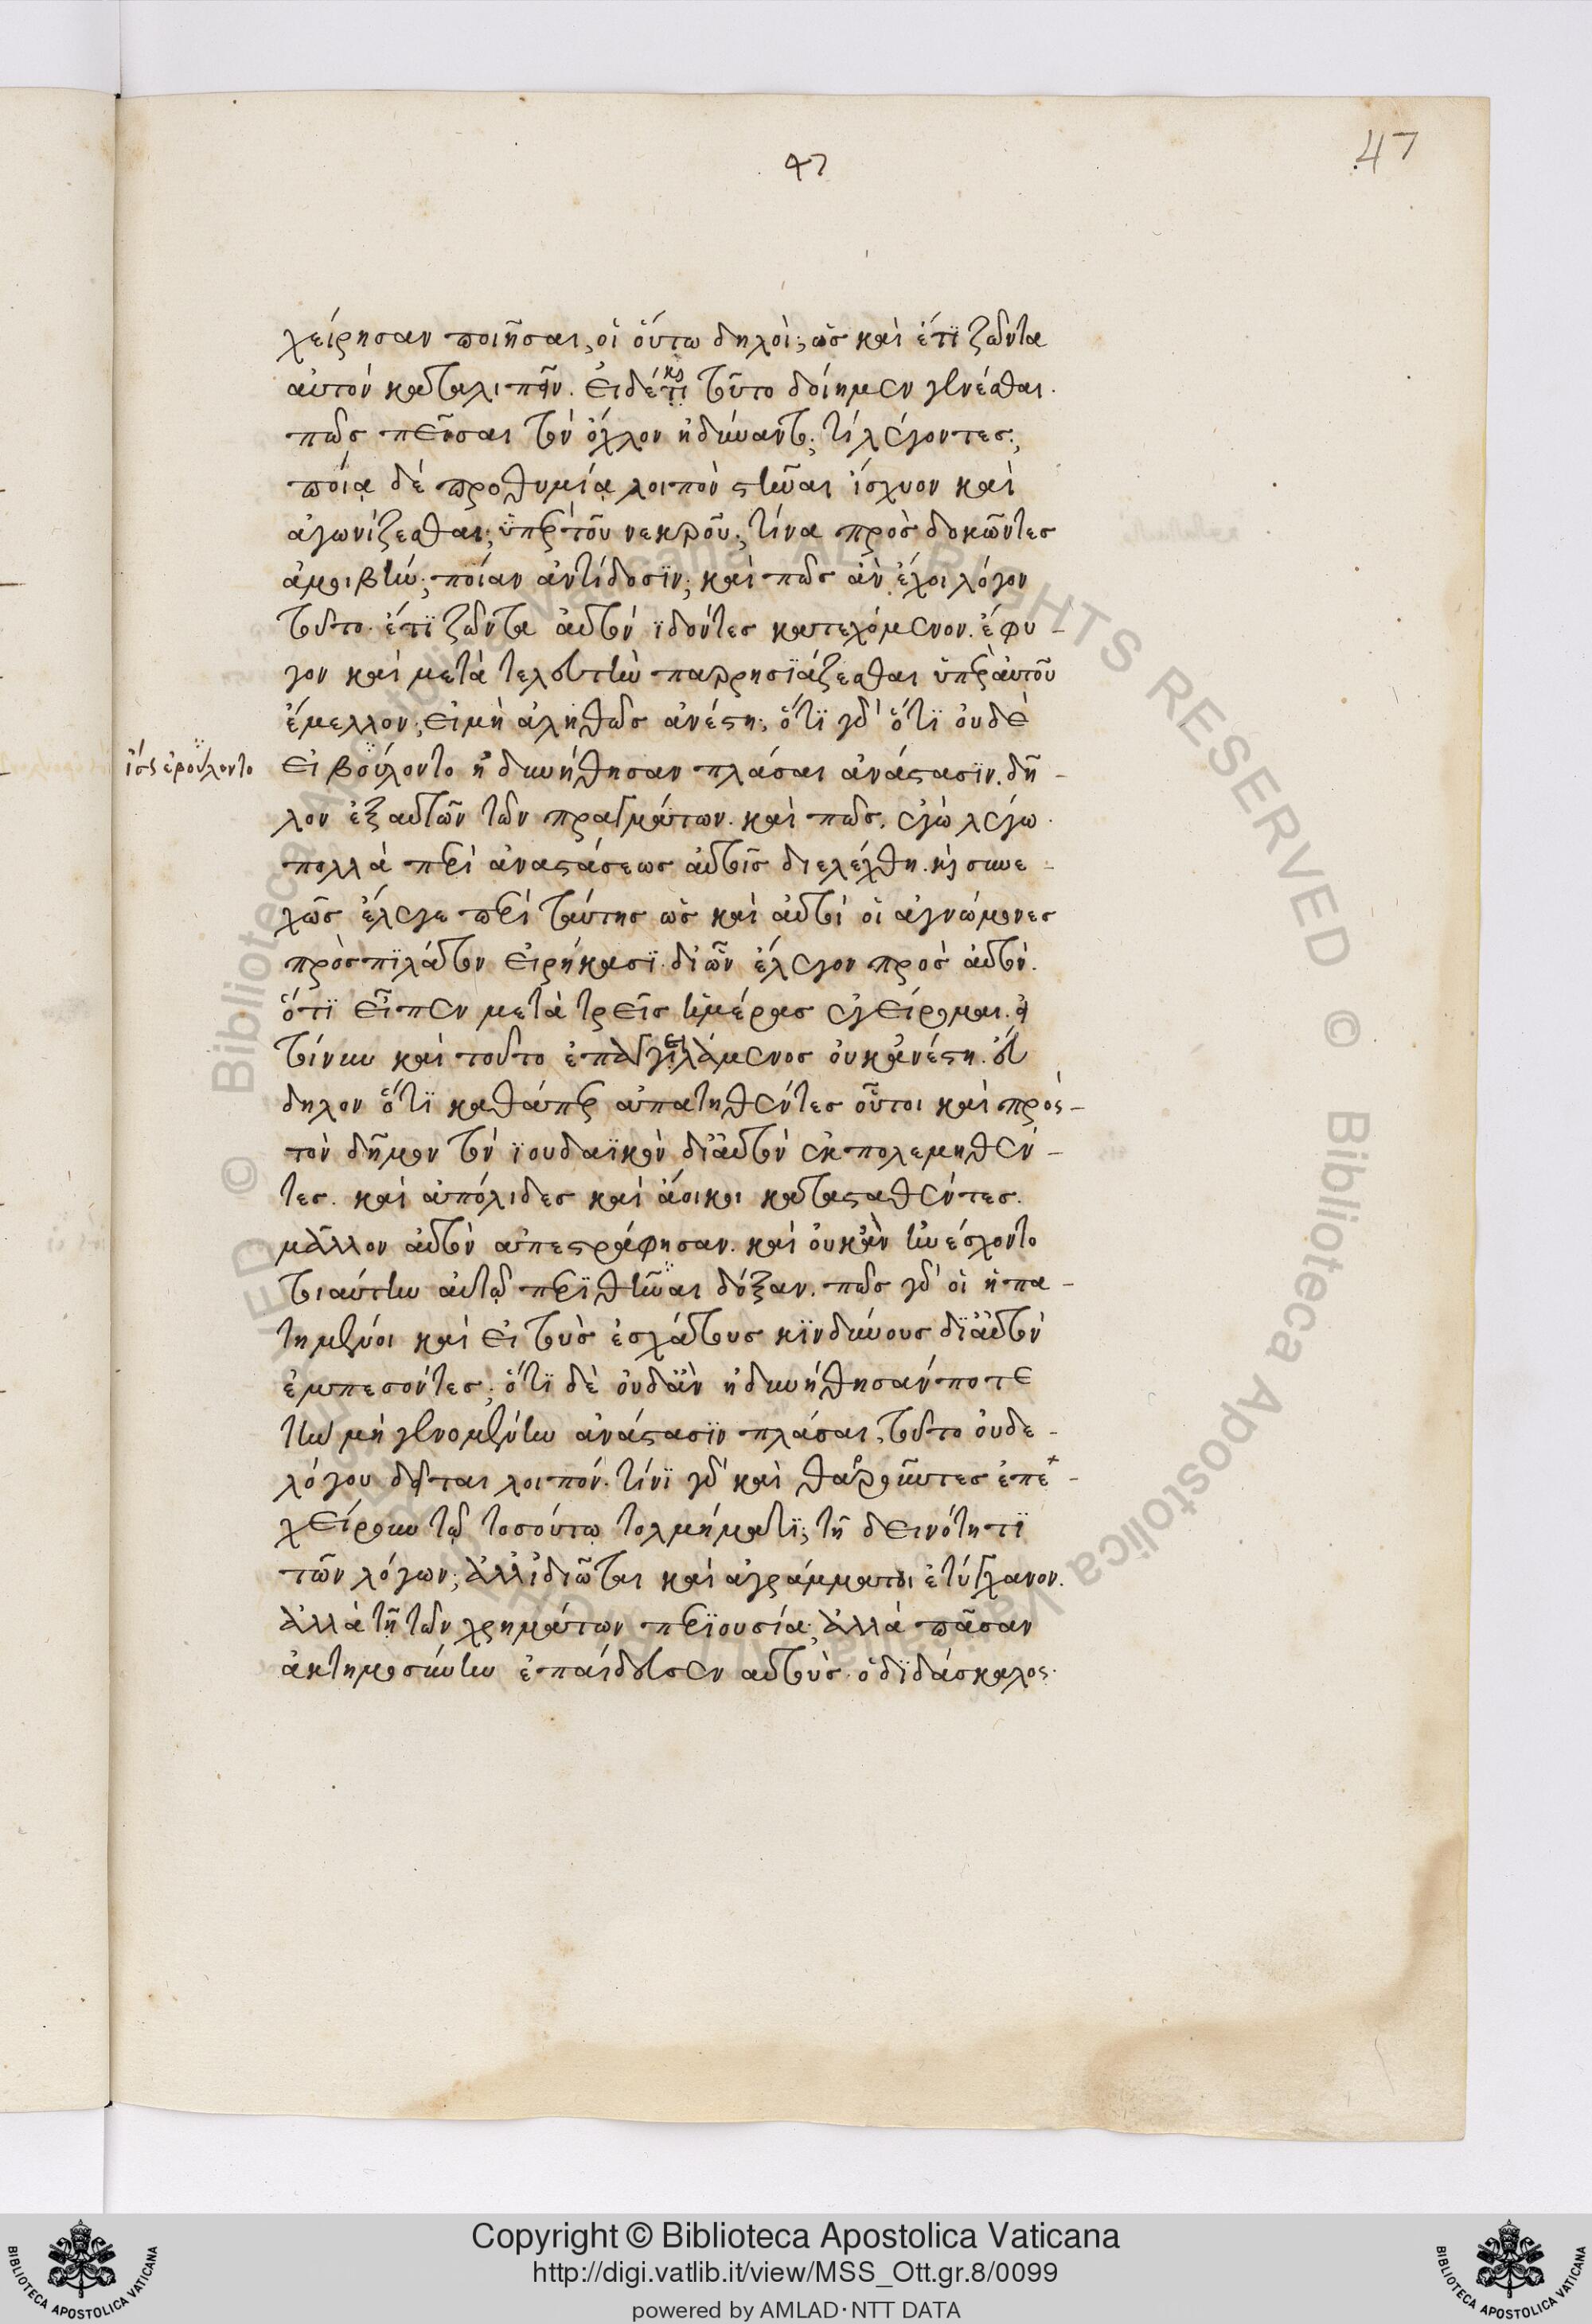 47
47
χείρησαν ποιῆσαι, οἱ ὅύτω δηλοὶ; ὡς καὶ ἔτϊ ζῶντα
αὐτὸν καταλιπεῖν. Ἐιδέτι καὶ τοῦτο δοίημεν γενέσθαι.
πῶς πεῖσαι τὸν ὄχλον ἠδύναντο; τί λέγοντες;
ποίᾳ δὲ προθυμίᾳ λοιπὸν στῆναι ἴσχυον καὶ
ἀγωνίζεσθαι; ὑπὲρ τοῦ νεκροῦ; τίνα προσδοκῶντες
ἀμοιβὴν; ποίαν ἀντίδοσϊν; καὶ πῶς ἂν ἔχοι λόγον
τοῦτο. ἔτϊ ζῶντα αὐτὸν ϊδόντες κατεχόμενον. ἔφυ-
γον καὶ μετὰ τελευτὴν παρρησϊάζεσθαι ὑπὲρ αὐτοῦ
ἔμελλον; εἰμὴ ἀληθῶς ἀνέστη; ὅτϊ γὰρ ὅτϊ ὀυδὲ
ἴσως ἐβούλοντο
εἰ βούλοντο ἠδυνήθησαν πλάσαι ἀνάστασϊν. δῆ-
λον ἐξ αὐτῶν τῶν πραγμάτων. καὶ πῶς, ἐγὼ λέγω.
πολλὰ περὶ ἀναστάσεως αὐτοῖς διελέχθη. καὶ συνε-
χῶς ἔλεγε περὶ ταύτης ὡς καὶ αὐτοὶ οἱ ἀγνώμονες
πρὸς πϊλάτον εἰρήκασϊ. δϊ ὧν ἔλεγον πρὸς αὐτὸν.
ὅτϊ εἶπεν μετὰ τρεῖς ἡμέρας ἐγείρομαι. εἰ
τοίνυν καὶ τοῦτο ἐπαγγειλάμενος ὀυκ ἀνέστη. εὔ
δηλον ὅτϊ καθάπερ ἀπατηθέντες οὗτοι καὶ πρὸς-
τὸν δῆμον τὸν ϊουδαϊκὸν δϊ αὐτὸν ἐκπολεμηθέν-
τες. καὶ ἀπόλιδες καὶ ἄοικοι κατασταθέντες.
μᾶλλον αὐτὸν ἀπεστράφησαν. καὶ ὀυκ ἂν ἠνέσχοντο
τοιαύτην αὐτῷ περϊθῆναι δόξαν. πῶς γὰρ οἱ ἠπα-
τημένοι καὶ εἰ τοὺς ἐσχάτους κϊνδύνους δϊ αὐτὸν
ἐμπεσόντες; ὅτϊ δὲ ὀυδ ἂν ἠδυνήθησάν ποτε
τὴν μὴ γενομένην ἀνάστασϊν πλάσαι, τοῦτο ὀυδε-
λόγου δεῖται λοιπόν. τίνϊ γὰρ καὶ θαρροῦντες ἐπε-
χείρουν τῷ τοσούτῳ τολμήματϊ; τῇ δεινότητϊ
τῶν λόγων; ἀλλ ἰδιῶται καὶ ἀγράμματοι ἐτύγχανον.
ἀλλὰ τῇ τῶν χρημάτων περϊουσίᾳ; ἀλλὰ πᾶσαν
ἀκτημοσύνην ἐπαίδευσεν αὐτοὺς. ὁ δϊδάσκαλος.
© Biblioteca Apostolica Vaticana ALL RIGHTS RESERVED © Biblioteca Apostolica Vaticana
Copyright © Biblioteca Apostolica Vaticana
http://digi.vatlib.it/view/MSS_Ott.gr.8/0099
powered by AMLAD·NTT DATA
BIBLIOTECA APOSTOLICA VATICANA
BIBLIOTECA APOSTOLICA VATICANA